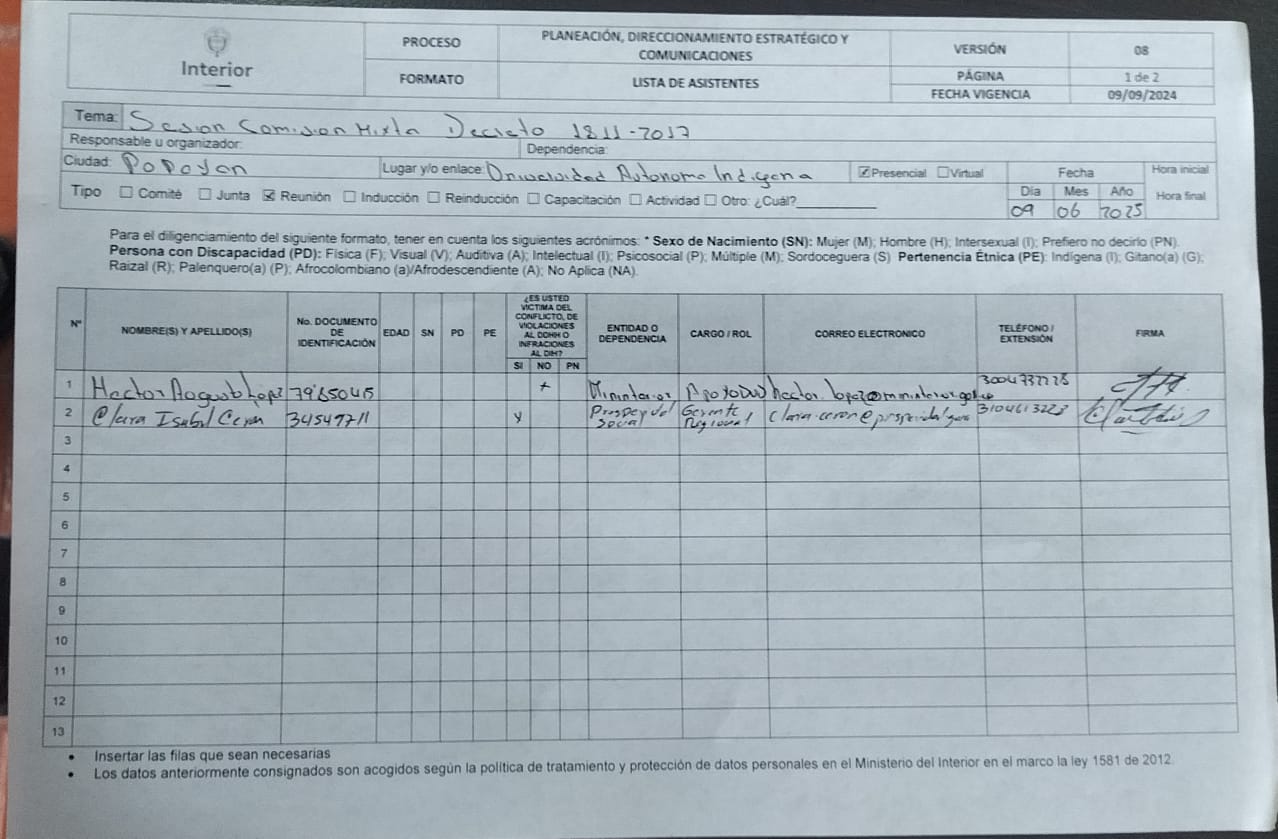 Interior
PROCESO
PLANEACIÓN, DIRECCIONAMIENTO ESTRATÉGICO Y
COMUNICACIONES
VERSIÓN
08
FORMATO
LISTA DE ASISTENTES
PÁGINA
1 de 2
FECHA VIGENCIA
09/09/2024
Tema: Sesion Comision Mixta Decreto 1811-2017
Responsable u organizador:
Dependencia:
Ciudad: Popayan
Lugar y/o enlace: Universidad Autonoma Indigena
Presencial
Virtual
Fecha
Hora inicial
Tipo
Comité
Junta
Reunión
Inducción
Reinducción
Capacitación
Actividad
Otro: ¿Cuál?
Día
Mes
Año
Hora final
09
06
2025
Para el diligenciamiento del siguiente formato, tener en cuenta los siguientes acrónimos: * Sexo de Nacimiento (SN): Mujer (M); Hombre (H); Intersexual (I); Prefiero no decirlo (PN).
Persona con Discapacidad (PD): Física (F); Visual (V); Auditiva (A); Intelectual (I); Psicosocial (P); Múltiple (M); Sordoceguera (S) Pertenencia Étnica (PE): Indígena (I); Gitano(a) (G);
Raizal (R); Palenquero(a) (P); Afrocolombiano (a)/Afrodescendiente (A); No Aplica (NA).
N°
NOMBRE(S) Y APELLIDO(S)
No. DOCUMENTO
DE
IDENTIFICACIÓN
EDAD
SN
PD
PE
¿ES USTED
VICTIMA DEL
CONFLICTO, DE
VIOLACIONES
AL DDHH O
INFRACIONES
AL DIH?
SI
NO
PN
ENTIDAD O
DEPENDENCIA
CARGO / ROL
CORREO ELECTRONICO
TELÉFONO /
EXTENSIÓN
FIRMA
1
Hector Augusto Lopez
79'650415
+
Mininterior
hector.lopez@mininterior.gov.co
3004737278
2
Clara Isabel Ceron
34549711
y
Social
Gerente
Regional
3104613223
3
4
5
6
7
8
9
10
11
12
13
• Insertar las filas que sean necesarias
• Los datos anteriormente consignados son acogidos según la política de tratamiento y protección de datos personales en el Ministerio del Interior en el marco la ley 1581 de 2012.